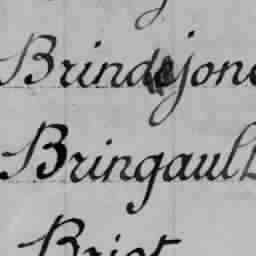 Brindejonc
Bringault
Briot